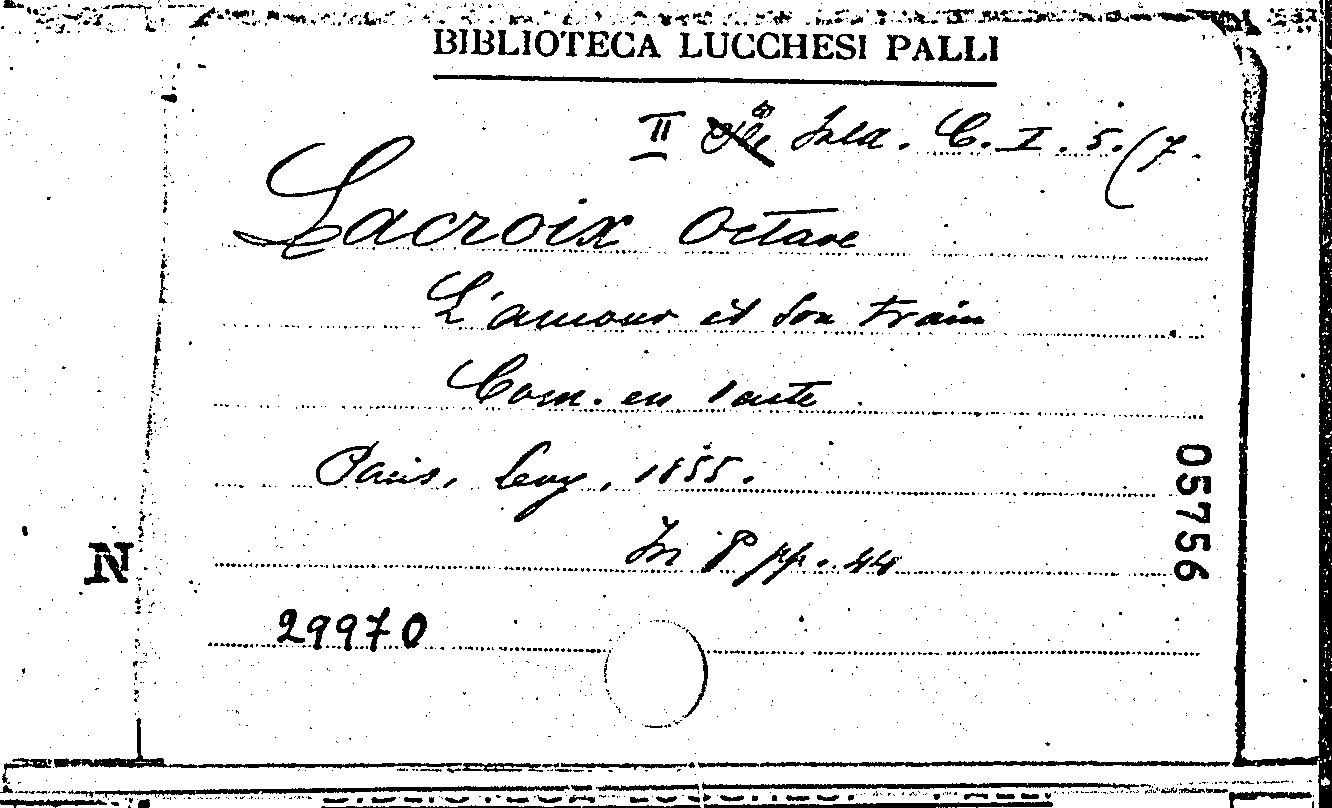 BIBLIOTECA LUCCHESI PALLI
II Sala. C. I. 5. (7.
Lacroix Octave
L'amour et son train
Com. en 1 acte
Paris, Levy, 1855.
In 8 pp. 44
05756
N
29970